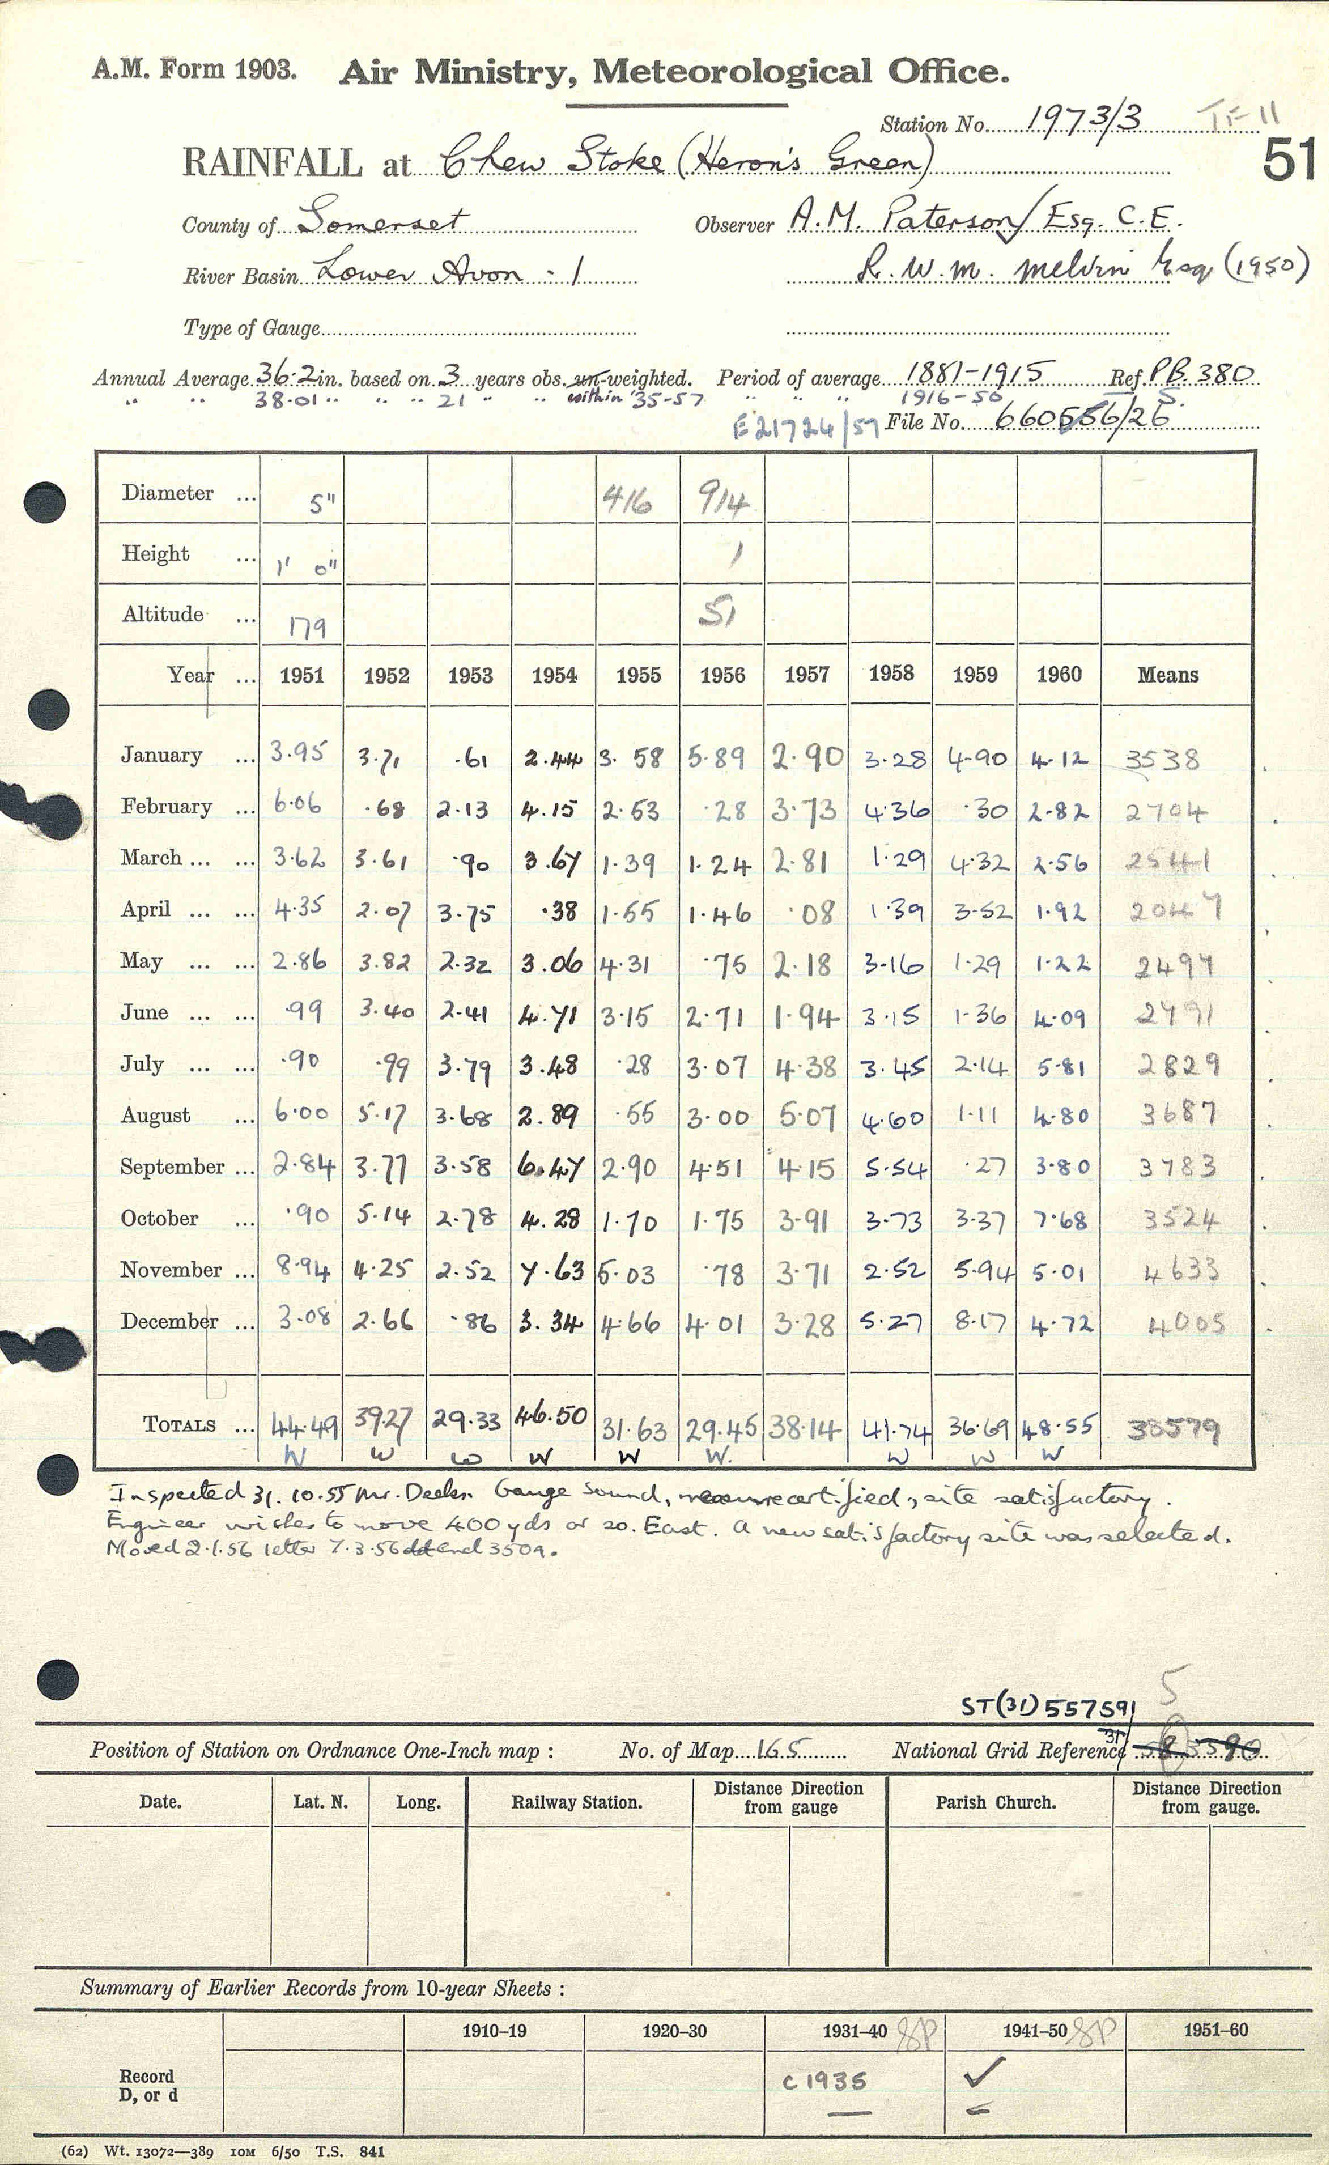 A.M. Form 1903. Air Ministry, Meteorological Office.
Station No. 1973/3 TF 11
51
RAINFALL at Chew Stoke (Heron's Green)
County of Somerset Observer A.M. Paterson Esq. C.E.
River Basin Lower Avon - 1 R. W. M. Melvin Esq (1950)
Type of Gauge
Annual Average 36.2 in. based on 3 years obs. un-weighted. Period of average 1881-1915 Ref. P.B. 380
" " 38.01 " " " 21 " " within '35-57 " " " 1916-50 S.
E 21724/57 File No. 660556/26
Diameter ... 5" 416 914
Height ... 1' 0" 1
Altitude ... 179 51
Year ... 1951 1952 1953 1954 1955 1956 1957 1958 1959 1960 Means
January ... 3.95 3.71 .61 2.44 3.58 5.89 2.90 3.28 4.90 4.12 3538
February ... 6.06 .68 2.13 4.15 2.53 .28 3.73 4.36 .30 2.82 2704
March ... ... 3.62 3.61 .90 3.67 1.39 1.24 2.81 1.29 4.32 2.56 2541
April ... ... 4.35 2.07 3.75 .38 1.55 1.46 .08 1.39 3.52 1.92 2047
May ... ... 2.86 3.82 2.32 3.06 4.31 .75 2.18 3.16 1.29 1.22 2497
June ... ... .99 3.40 2.41 4.71 3.15 2.71 1.94 3.15 1.36 4.09 2791
July ... ... .90 .99 3.79 3.48 .28 3.07 4.38 3.45 2.14 5.81 2829
August ... 6.00 5.17 3.68 2.89 .55 3.00 5.07 4.60 1.11 4.80 3687
September ... 2.84 3.77 3.58 6.47 2.90 4.51 4.15 5.54 .27 3.80 3783
October ... .90 5.14 2.78 4.28 1.70 1.75 3.91 3.73 3.37 7.68 3524
November ... 8.94 4.25 2.52 7.63 5.03 .78 3.71 2.52 5.94 5.01 4633
December ... 3.08 2.66 .86 3.34 4.66 4.01 3.28 5.27 8.17 4.72 4005
TOTALS ... 44.49 39.27 29.33 46.50 31.63 29.45 38.14 41.74 36.69 48.55 38579
W W W W W W. W W W
Inspected 31.10.55 Mr. Gauge sound, certified, site satisfactory.
Engineer wishes to move 400 yds or so. East. A new satisfactory site was selected.
Moved 2.1.56 letter 7.3.56 encl 350A.
5
ST(31)557591
Position of Station on Ordnance One-Inch map : No. of Map 165 National Grid Reference 31/ 585590
Date. Lat. N. Long. Railway Station. Distance Direction from gauge Parish Church. Distance Direction from gauge.
Summary of Earlier Records from 10-year Sheets :
1910–19 1920–30 1931–40 SP 1941–50 SP 1951–60
Record D, or d c 1935 ✓
(62) Wt. 13072—389 10M 6/50 T.S. 841